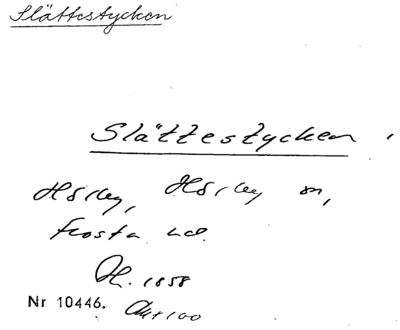 Slättestycken
Slättestycken,
Hörby, Hörby sn,
Frosta hd.
1858
Nr 10446.